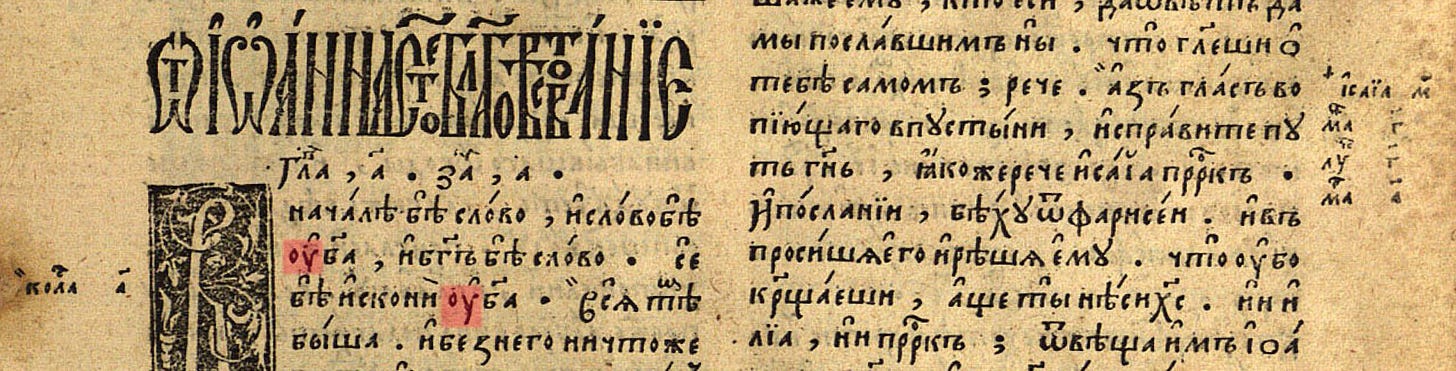 Ѿ ІѠА́ННА СТ҃ОЕ БЛ҃ГОВѢСТВОВА́НЇЕ
Гла҃, а҃. За҃, а҃.
В
нача́лѣ бѣ̀ сло́во, и҆сло́во бѣ̀
оу҆ б҃а, и҆ бг҃ъ бѣ̀ сло́во. се̑
бѣ̀ и҆скони̏ оу҆ б҃а. Всѧ̑ тѣⷨ
бы́ша. и҆ без него ничтоже
кола҃ а҃
мы посла́вшимъ ны̀. что̀ гл҃еши ѡ҆
тебѣ̀ самомъ; рече. а҆́зъ гла́съ во
пїю́щаго в пꙋсты́ни, и҆спра́вите пꙋ
ть гн҃ь, ꙗ҆коже рече и҆са́їа прⷪ҇ркъ.
И҆ по́сланїи, бѣ́хꙋ ѿ фарисе́и. и҆ въ
проси́шѧ е҆го и҆ рѣ́шѧ е҆мꙋ. что̀ оу҆бо
крⷭ҇ща́еши, а҆ще ты̀ нѣ́си хс҃. ни и҆
лїа, ни прⷪ҇ркъ; ѿвѣща и҆мъ іѡа́
і҆саїа м҃
ма҃ г҃
лу҃ г҃
ма҃ а҃